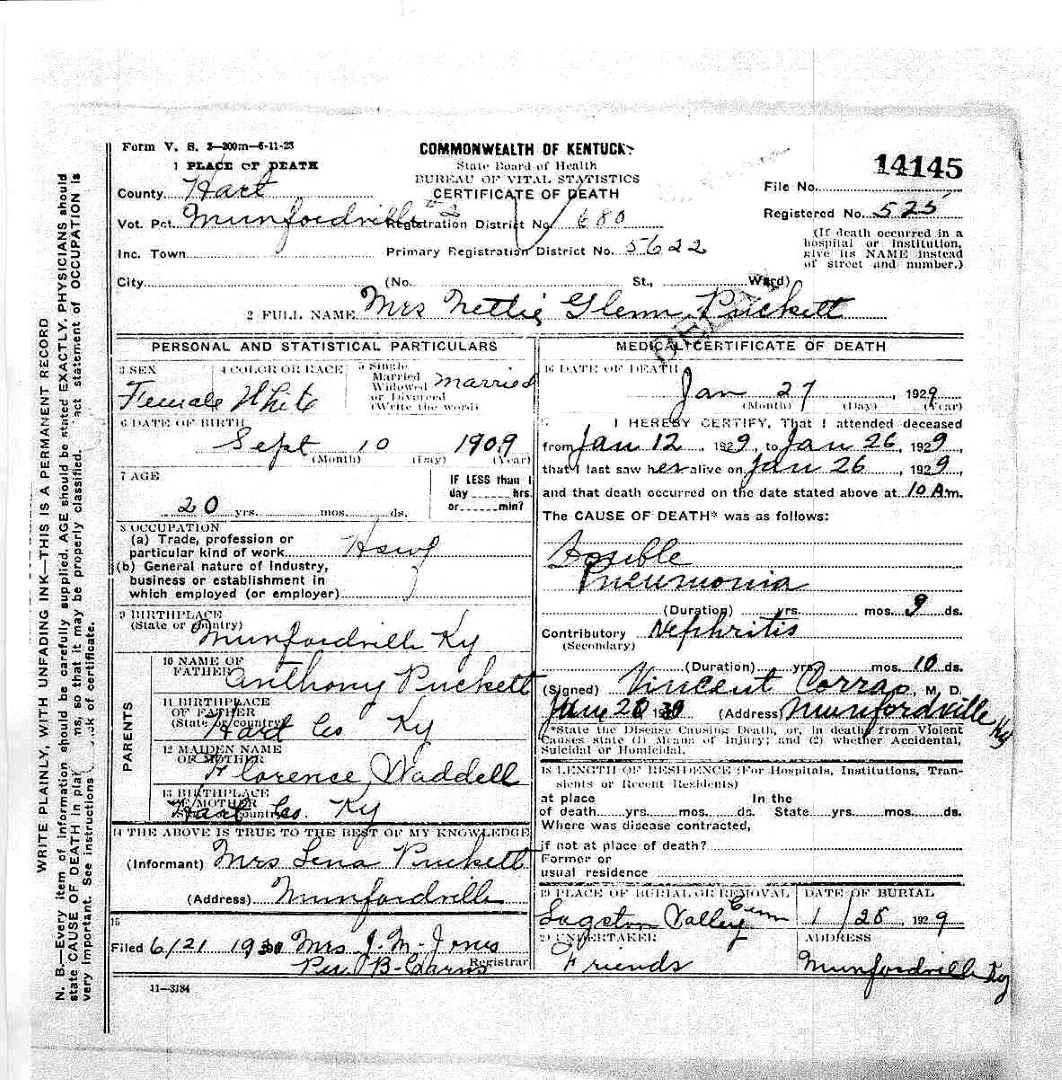 Form V. S. 2-200m-6-11-23
COMMONWEALTH OF KENTUCKY
State Board of Health
BUREAU OF VITAL STATISTICS
CERTIFICATE OF DEATH
14145
File No.
Registered No. 525
(If death occurred in a hospital or institution, give its NAME instead of street and number.)
1 PLACE OF DEATH
County Hart
Vot. Pct. Munfordville #2 Registration District No. 680
Inc. Town Primary Registration District No. 5622
City (No. St., Ward)
2 FULL NAME Mrs Nettie Glenn Puckett
PERSONAL AND STATISTICAL PARTICULARS
3 SEX Female
4 COLOR OR RACE White
5 Single Married Widowed or Divorced (Write the word) Married
6 DATE OF BIRTH
Sept 10 1909
(Month) (Day) (Year)
7 AGE
20 yrs. mos. ds.
IF LESS than 1 day hrs. or min?
8 OCCUPATION
(a) Trade, profession or particular kind of work
(b) General nature of Industry, business or establishment in which employed (or employer)
9 BIRTHPLACE
(State or country)
Munfordville Ky
PARENTS
10 NAME OF FATHER Anthony Puckett
11 BIRTHPLACE OF FATHER (State or country) Hart Co Ky
12 MAIDEN NAME OF MOTHER Florence Waddell
13 BIRTHPLACE OF MOTHER (State or country) Hart Co. Ky
14 THE ABOVE IS TRUE TO THE BEST OF MY KNOWLEDGE
(Informant) Mrs Lena Puckett
(Address) Munfordville
15
Filed 6/21 1930 Mrs J. M. Jones
Registrar
11-3184
MEDICAL CERTIFICATE OF DEATH
16 DATE OF DEATH
Jan 27, 1929
(Month) (Day) (Year)
17 I HEREBY CERTIFY, That I attended deceased
from Jan 12, 1929, to Jan 26, 1929
that I last saw her alive on Jan 26, 1929
and that death occurred on the date stated above at 10 Am.
The CAUSE OF DEATH* was as follows:
Pneumonia
(Duration) yrs. mos. 9 ds.
Contributory Nephritis
(Secondary)
(Duration) yrs. mos. 10 ds.
(Signed) Vincent Corrao, M. D.
(Address) Munfordville Ky
*State the Disease Causing Death, or, in deaths from Violent
Causes state (1) Means of Injury; and (2) whether Accidental,
Suicidal or Homicidal.
18 LENGTH OF RESIDENCE (For Hospitals, Institutions, Transients or Recent Residents)
at place In the
of death yrs. mos. ds. State yrs. mos. ds.
Where was disease contracted,
if not at place of death?
Former or
usual residence
19 PLACE OF BURIAL OR REMOVAL
Valley Cem
DATE OF BURIAL
1/28, 1929
20 UNDERTAKER
Friends
ADDRESS
Munfordville Ky
WRITE PLAINLY, WITH UNFADING INK—THIS IS A PERMANENT RECORD
N. B.—Every item of information should be carefully supplied. AGE should be stated EXACTLY. PHYSICIANS should
state CAUSE OF DEATH in so that it may be properly classified. statement of OCCUPATION is
very important. See instructions of certificate.